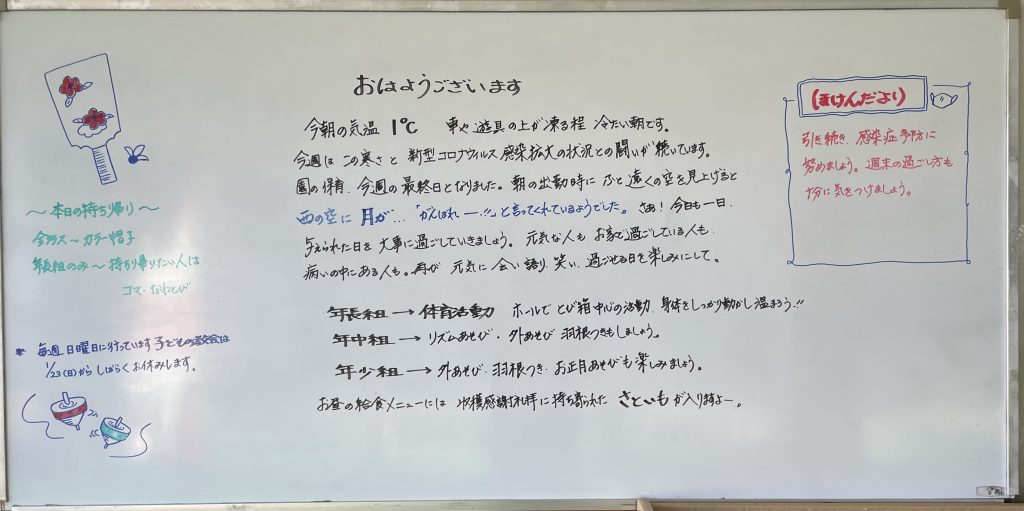 おはようございます
今朝の気温 1℃ 車や遊具の上が凍る程 冷たい朝です。
今週は この寒さと 新型コロナウィルス感染拡大の状況との闘いが続いています。
園の保育、今週の最終日となりました。朝の出勤時に ふと遠くの空を見上げると
西の空に 月が…「がんばれー!!」と言ってくれているようでした。さぁ!今日も一日、
与えられた日を大事に過ごしていきましょう。元気な人も お家で過ごしている人も、
病いの中にある人も。再び 元気に会い 語り、笑い、過ごせる日を楽しみにして。
年長組→体育活動 ホールで とび箱中心の活動、身体をしっかり動かし温まろう!!
年中組→リズムあそび・外あそび 羽根つきもしましょう。
年少組→外あそび・羽根つき・お正月あそびも楽しみましょう。
お昼の給食メニューには 収穫感謝礼拝に持ち寄られた さといもが入りますよー。
〜本日の持ち帰り〜
全クラス〜カラー帽子
年長組のみ〜持ち帰りたい人は
コマ・なわとび
* 毎週日曜日に行っています子どもの教会は
1/23(日)からしばらくお休みします。
(ほけんだより)
引き続き、感染症予防に
努めましょう。週末の過ごし方も
十分に気をつけましょう。